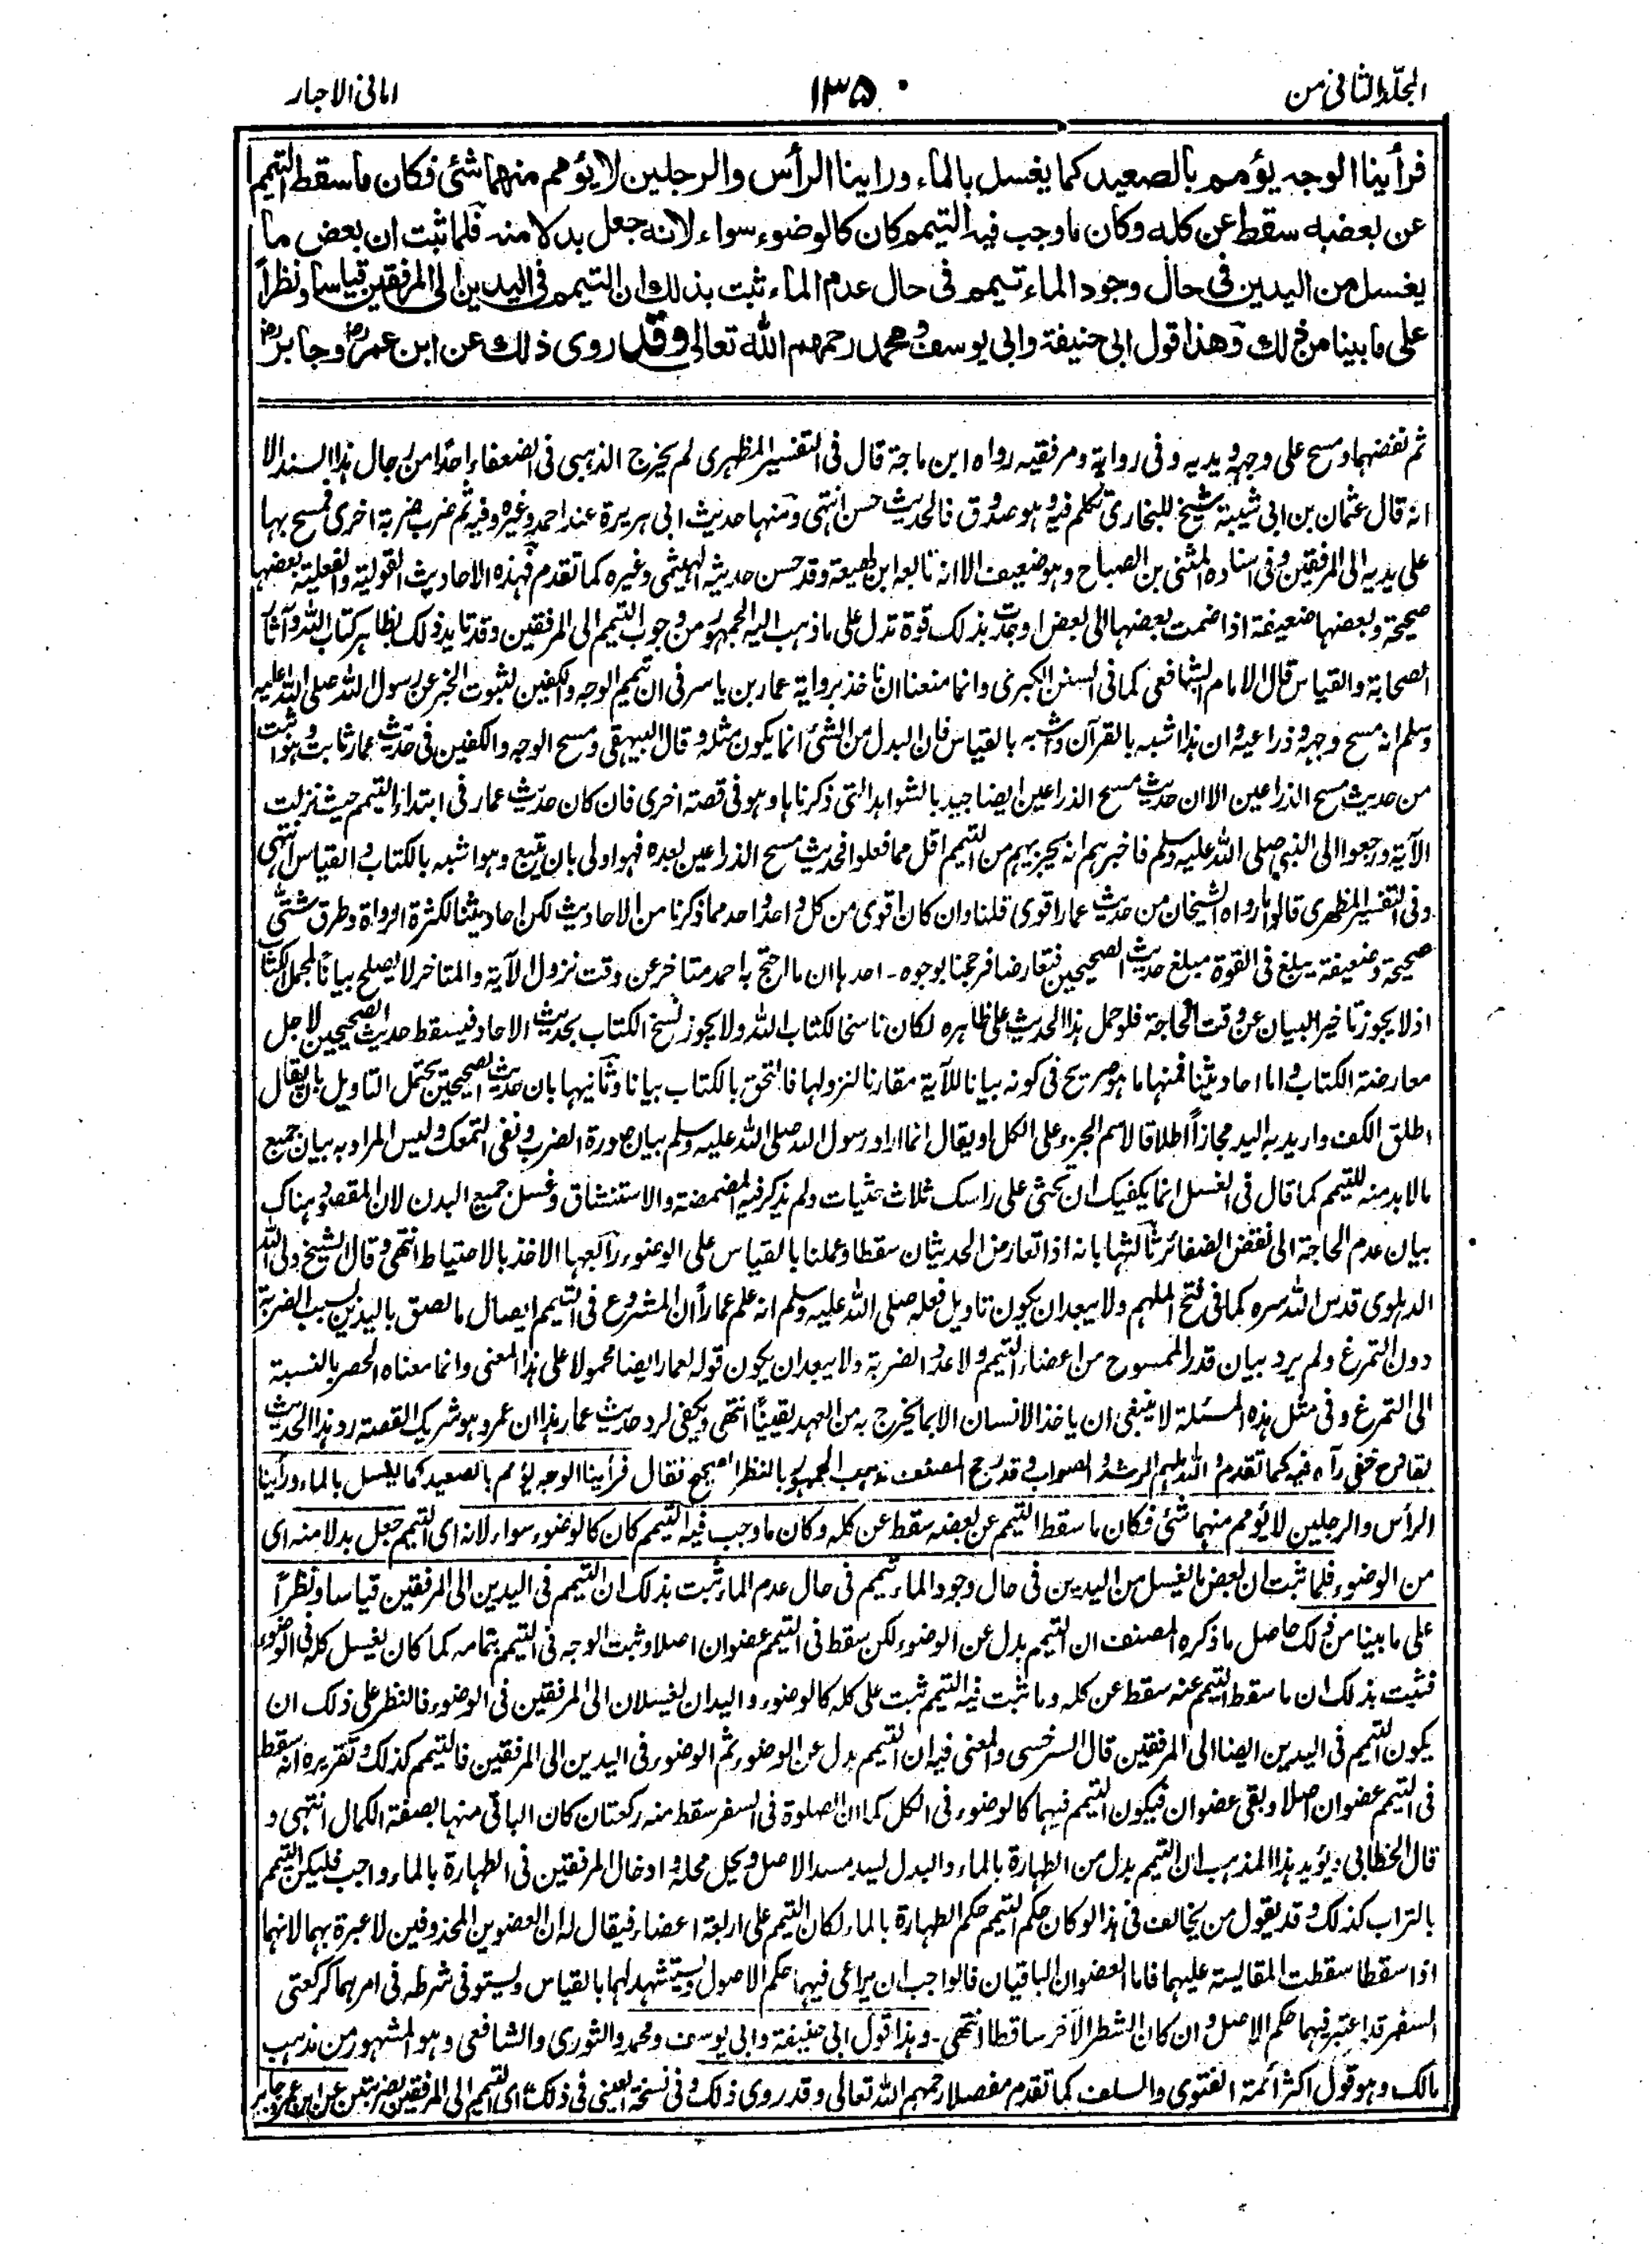 المجلد الثانی من
١٣٥
امانی الاحبار
فرأينا الوجه يؤمم بالصعيد كما يغسل بالماء وراينا الرأس والرجلين لا يؤمم منهما شئ فكان ما سقط التيمم
عن بعضه سقط عن كله وكان ما وجب فيه التيمم كان كالوضوء سواء لانه جعل بدلا منه فلما ثبت ان بعض ما
يغسل من اليدين فى حال وجود الماء تيمم فى حال عدم الماء ثبت بذلك ان التيمم فى اليدين الى المرفقين قياسا ونظراً
على ما بينا من ذلك وهذا قول ابى حنيفة وابى يوسف ومحمد رحمهم الله تعالى وقد روى ذلك عن ابن عمر رض وجابر رض
ثم نفضهما ومسح على وجهه ويديه وفى رواية ومرفقيه رواه ابن ماجة قال فى التفسير المظهرى لم يخرج الذهبى فى الضعفاء احدا من رجال هذا السند الا
انه قال عثمان بن ابى شيبة شيخ للبخارى تكلم فيه وهو صدوق فالحديث حسن انتهى ومنها حديث ابى هريرة عند احمد وغيره وفيه ثم ضرب ضربة اخرى فمسح بها
على يديه الى المرفقين وفى اسناده المثنى بن الصباح وهو ضعيف الا انه تابعه ابن لهيعة وقد حسن حديثه الهيثمى وغيره كما تقدم فهذه الاحاديث القولية والفعلية بعضها
صحيحة وبعضها ضعيفة اذا ضمت بعضها الى بعض اوجدت بذلك قوة تدل على ما ذهب اليه الجمهور من وجوب التيمم الى المرفقين وقد تايد ذلك بظاهر كتاب الله وآثار
الصحابة والقياس قال الامام الشافعى كما فى السنن الكبرى وانما منعنا ان ناخذ برواية عمار بن ياسر فى ان تيمم الوجه والكفين لثبوت الخبر عن رسول الله صلى الله عليه
وسلم انه مسح وجهه وذراعيه وان هذا اشبه بالقرآن واشبه بالقياس فان البدل من الشئ انما يكون مثله وقال البيهقى ومسح الوجه والكفين فى حديث عمار ثابت وهو اثبت
من حديث مسح الذراعين الا ان حديث مسح الذراعين ايضا جيد بالشواهد التى ذكرناها وهو فى قصة اخرى فان كان حديث عمار فى ابتداء التيمم حيث نزلت
الآية ورجعوا الى النبى صلى الله عليه وسلم فاخبرهم انه يجزيهم من التيمم اقل مما فعلوا فحديث مسح الذراعين بعده فهو اولى بان يتبع وهو اشبه بالكتاب والقياس انتهى
وفى التفسير المظهرى قالوا ما رواه الشيخان من حديث عمار اقوى قلنا وان كان اقوى من كل واحد واحد مما ذكرنا من الاحاديث لكن احاديثنا لكثرة الرواة وطرق شتى
صحيحة وضعيفة يبلغ فى القوة مبلغ حديث الصحيحين فتعارضا فرجحنا بوجوه - احدها ان ما احتج به احمد متاخر عن وقت نزول الآية والمتاخر لا يصلح بيانا لمجمل الكتاب
اذ لا يجوز تاخير البيان عن وقت الحاجة فلو حمل هذا الحديث على ظاهره لكان ناسخا لكتاب الله ولا يجوز نسخ الكتاب بحديث الاحاد فيسقط حديث الصحيحين لاجل
معارضة الكتاب واما احاديثنا فمنها ما هو صريح فى كونه بيانا للآية مقارنا لنزولها فالتحق بالكتاب بيانا وثانيها بان حديث الصحيحين يحتمل التاويل بان يقال
اطلق الكف واريد به اليد مجازا اطلاقا لاسم الجزء على الكل او يقال انما اراد رسول الله صلى الله عليه وسلم بيان صورة الضرب ونفى التمعك وليس المراد به بيان جميع
مالابد منه للتيمم كما قال فى الغسل انما يكفيك ان تحثى على راسك ثلاث حثيات ولم يذكر فيه المضمضة والاستنشاق وغسل جميع البدن لان المقصود هناك
بيان عدم الحاجة الى نقض الضفائر ثالثها بانه اذا تعارض الحديثان سقطا وعملنا بالقياس على الوضوء رابعها الاخذ بالاحتياط انتهى وقال الشيخ ولى الله
الدهلوى قدس الله سره كما فى فتح الملهم ولا يبعد ان يكون تاويل فعله صلى الله عليه وسلم انه علم عمارا ان المشروع فى التيمم ايصال ما لصق باليدين بسبب الضربة
دون التمرغ ولم يرد بيان قدر الممسوح من اعضاء التيمم ولا عدد الضربة ولا يبعد ان يكون قوله لعمار ايضا محمولا على هذا المعنى وانما معناه الحصر بالنسبة
الى التمرغ وفى مثل هذه المسئلة لا ينبغى ان ياخذ الانسان الا بما يخرج به من العهد يقينا انتهى ويكفى لرد حديث عمار هذا ان عمر وهو شريك القصة رد هذا الحديث
لقادح خفى رآه فيه كما تقدم والله يلهم الرشد والصواب وقد رجح المصنف مذهب الجمهور بالنظر الصحيح فقال فرأينا الوجه يؤمم بالصعيد كما يغسل بالماء ورأينا
الرأس والرجلين لا يؤمم منهما شئ فكان ما سقط التيمم عن بعضه سقط عن كله وكان ما وجب فيه التيمم كان كالوضوء سواء لانه اى التيمم جعل بدلا منه اى
من الوضوء فلما ثبت ان بعض ما يغسل من اليدين فى حال وجود الماء تيمم فى حال عدم الماء ثبت بذلك ان التيمم فى اليدين الى المرفقين قياسا ونظراً
على ما بينا من ذلك حاصل ما ذكره المصنف ان التيمم بدل عن الوضوء لكن سقط فى التيمم عضوان اصلا وثبت الوجه فى التيمم بتمامه كما كان يغسل كله فى الوضوء
فثبت بذلك ان ما سقط التيمم عنه سقط عن كله وما ثبت فيه التيمم ثبت على كله كالوضوء واليدان يغسلان الى المرفقين فى الوضوء فالنظر على ذلك ان
يكون التيمم فى اليدين ايضا الى المرفقين قال السرخسى والمعنى فيه ان التيمم بدل عن الوضوء ثم الوضوء فى اليدين الى المرفقين فالتيمم كذلك وتقريره انه سقط
فى التيمم عضوان اصلا وبقى عضوان فيكون التيمم فيهما كالوضوء فى الكل كما ان الصلوة فى السفر سقط منه ركعتان كان الباقى منها بصفة الكمال انتهى و
قال الخطابى ويؤيد هذا المذهب ان التيمم بدل من الطهارة بالماء والبدل يسد مسد الاصل ويحل محله وادخال المرفقين فى الطهارة بالماء واجب فليكن التيمم
بالتراب كذلك وقد يقول من يخالف فى هذا لو كان حكم التيمم حكم الطهارة بالماء لكان التيمم على اربعة اعضاء فيقال له ان العضوين المحذوفين لا عبرة بهما لانهما
اذا سقطا سقطت المقايسة عليهما فاما العضوان الباقيان فالواجب ان يراعى فيهما حكم الاصول ويستشهد لهما بالقياس ويستوفى شرطه فى امرهما كركعتى
السفر قد اعتبر فيهما حكم الاصل وان كان الشطر الآخر ساقطا انتهى - وهذا قول ابى حنيفة وابى يوسف ومحمد والثورى والشافعى وهو المشهور من مذهب
مالك وهو قول اكثر ائمة الفتوى والسلف كما تقدم مفصلا رحمهم الله تعالى وقد روى ذلك وفى نسخة العينى فى ذلك اى التيمم الى المرفقين بضربتين عن ابن عمر وجابر